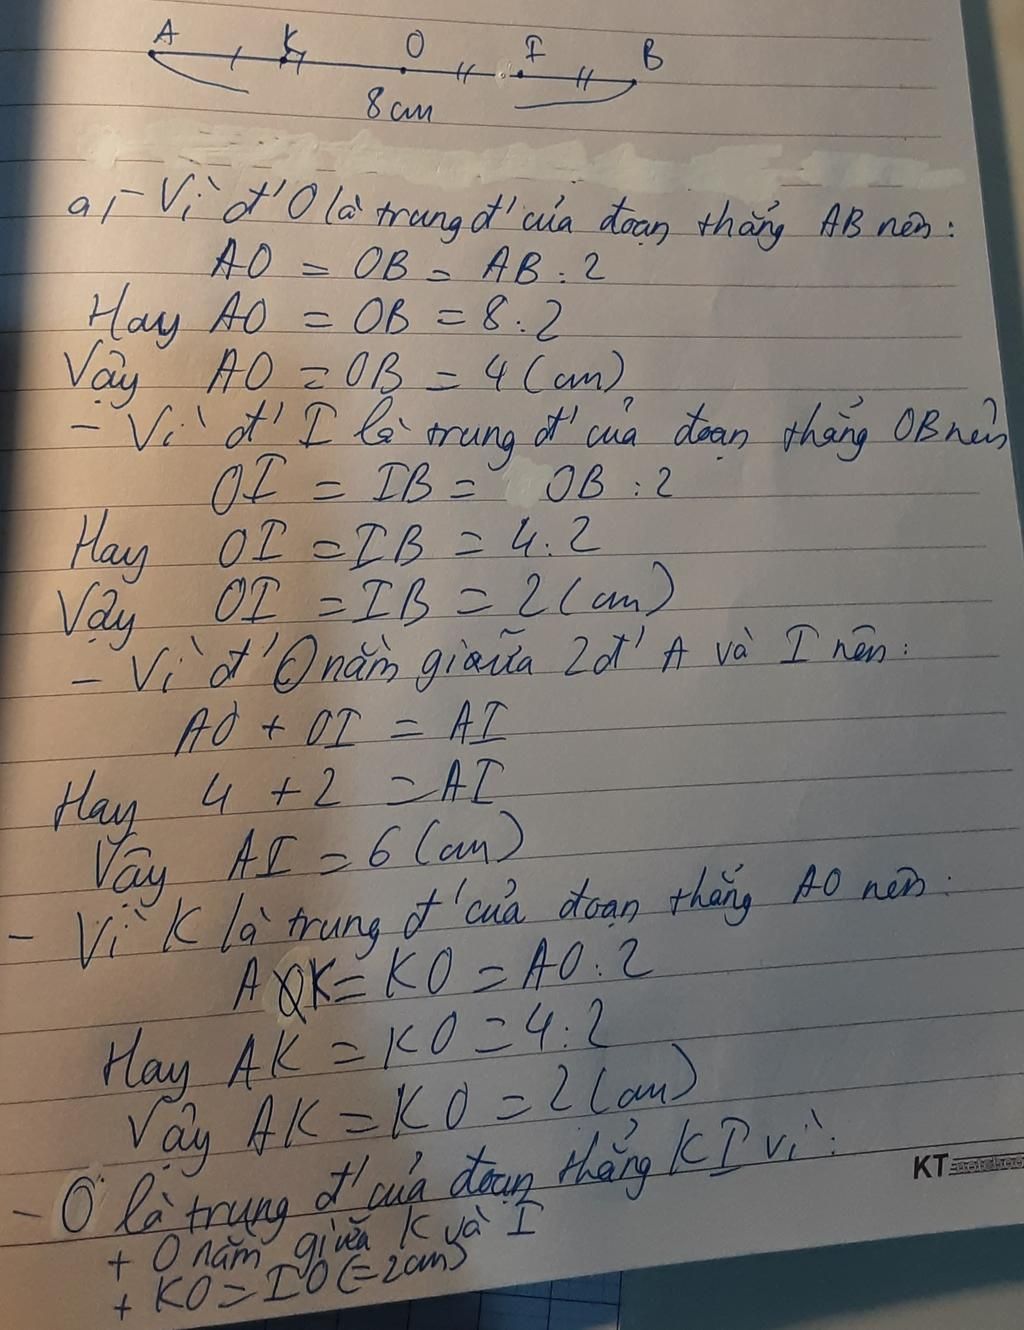 A K O I B
8cm
a, - Vì đ' O là trung đ' của đoạn thẳng AB nên:
AO = OB = AB : 2
Hay AO = OB = 8 : 2
Vậy AO = OB = 4 (cm)
- Vì đ' I là trung đ' của đoạn thẳng OB nên
OI = IB = OB : 2
Hay OI = IB = 4 : 2
Vậy OI = IB = 2 (cm)
- Vì đ' O nằm giữa 2 đ' A và I nên:
AO + OI = AI
Hay 4 + 2 = AI
Vậy AI = 6 (cm)
- Vì K là trung đ' của đoạn thẳng AO nên:
AK = KO = AO : 2
Hay AK = KO = 4 : 2
Vậy AK = KO = 2 (cm)
- O là trung đ' của đoạn thẳng KI vì:
+ O nằm giữa K và I
+ KO = IO (= 2cm)
KT